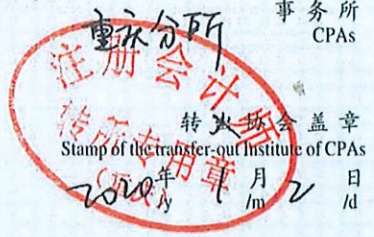 重庆分所
事务所
CPAs
注册会计师
转所专用章
转出协会盖章
Stamp of the transfer-out Institute of CPAs
2020年 1月 2日
/y /m /d